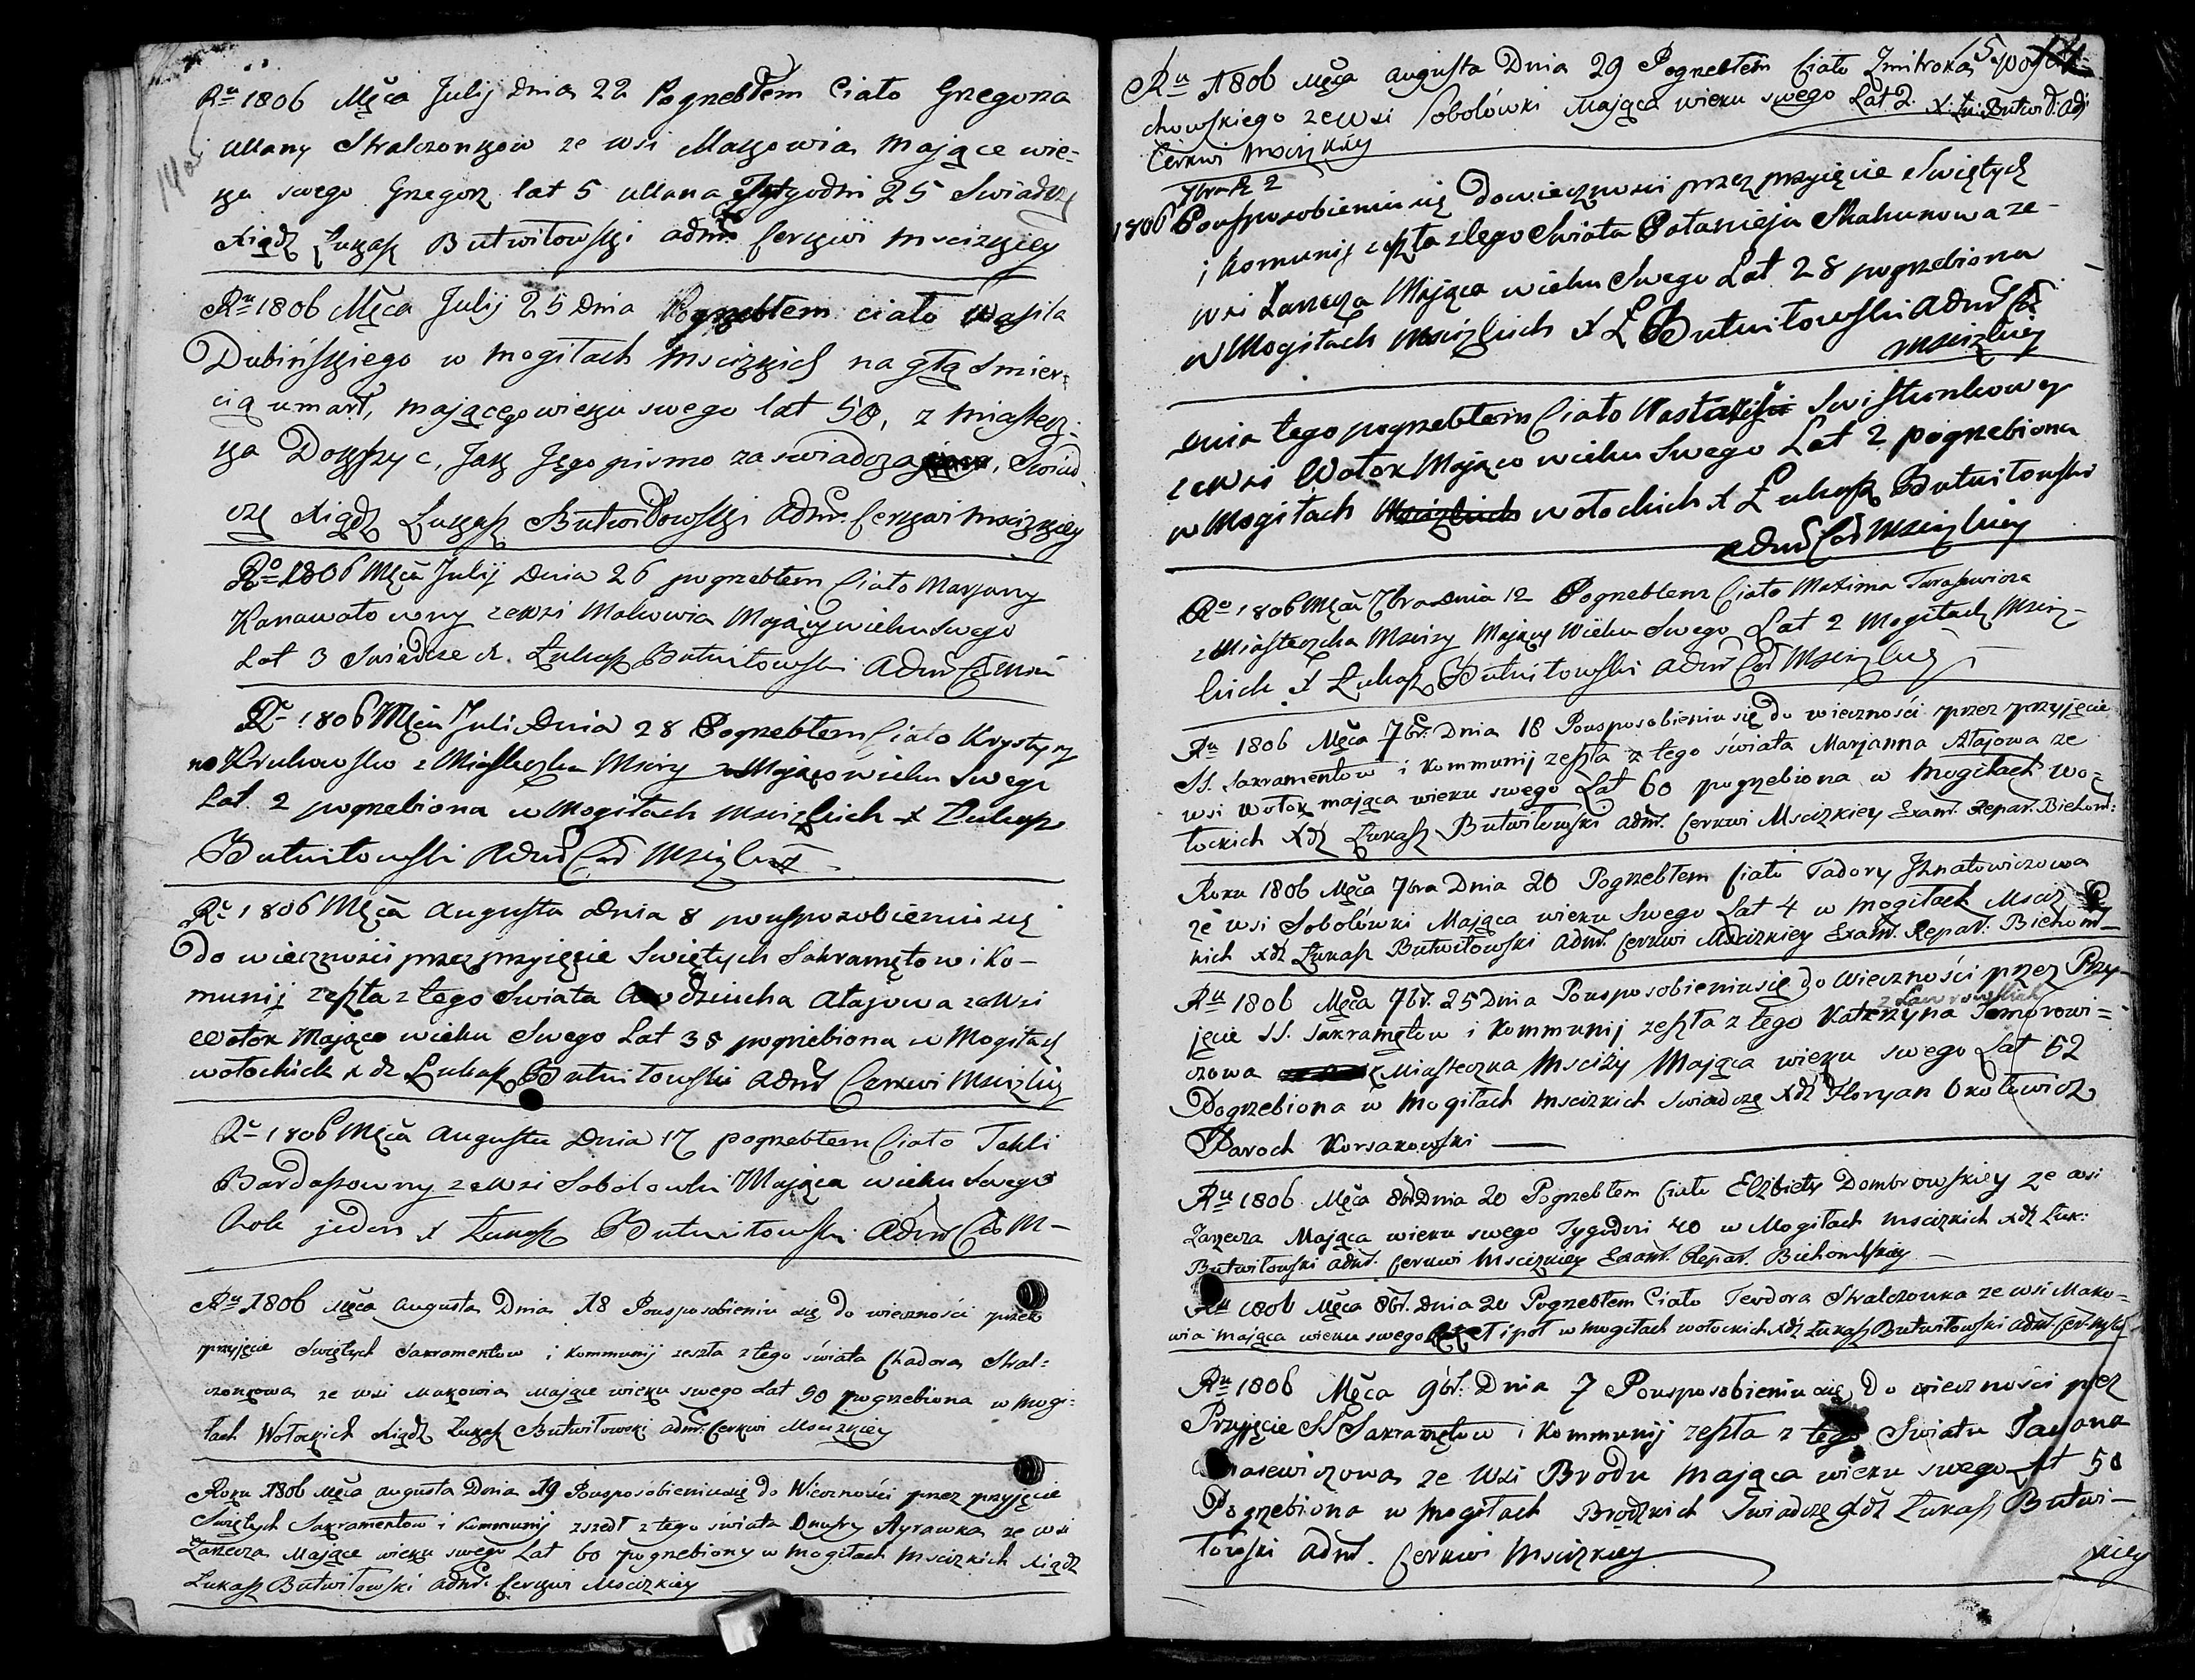 14 ob
Ru 1806 Męca Julij dnia 22 Pogrzebłem Ciało Grzegorza
Ullany Stralczonkow ze wsi Makowia mające wie-
ku swego Grzegorz lat 5 Ullana Tygodni 25 Swiadczę
Xiądz Łukasz Butwiłowski adm. Cerkwi Mscizkiey
Ru 1806 Męca Julij 25 dnia Pogrzebłem ciało Wasila
Dubińskiego w mogiłach Mscizkich nagłą smier-
cią umarł, mającego wieku swego lat 50, z miastecz-
ka Dokszyc, Jak Jego pismo zaswiadcza, Swiad-
czę Xiądz Łukasz Butwiłowski adm. Cerkwi Mscizkiey
Ro 1806 Męca Julij Dnia 26 pogrzebłem Ciało Maryanny
Kanawałowny ze wsi Makowia Mający wieku swego
Lat 3 Swiadcze X. Łukasz Butwiłowski Adm
R 1806 Męca Juli Dnia 28 Pogrzebłem Ciało Krystyn
no Krukowsko z Miasteczka Mscizy Mająco wieku Swego
Lat 2 pogrzebiona w Mogiłach Mscizkich X Łukasz
Butwiłowski Adm
Ru 1806 Męca Augusta Dnia 8 pousposobieniu się
Do wieczności przez przyięcie Swiętych Sakramętow i Ko-
munij zeszła z tego Swiata Awdziucha Ałajowa ze Wsi
Wołok Mająca wieku Swego Lat 38 pogrzebiona w Mogiłach
wołockich x dz Łukasz Butwiłowski Adm Cerkwi Mscizkiey
Ru 1806 Męca Augusta Dnia 17 pogrzebłem Ciało Tekli
Bardaszowny ze wsi Sobolowki Mająca wieku Swego
Rok jeden X Łukasz Butwiłowski Adm M-
Ru 1806 Męca Augusta Dnia 18 Pousposobieniu się do wieczności przez
przyjęcie Swiętych Sakramentow i Kommunij zeszła z tego świata Chadora Stral-
czonkowa ze wsi Makowia Mające wieku swego Lat 50 pogrzebiona w Mogi-
łach Wołockich Xiądz Łukasz Butwiłowski adm. Cerkwi Mscizkiey
Roku 1806 Męca Augusta Dnia 19 Pousposobieniusię do Wieczności przez przyjęcie
Swiętych Sakramentow i Kommunij zszedł z tego świata Onufry Ayrawka ze wsi
Zarzecza Mające wieku swego Lat 60 pogrzebiony w mogiłach Mscizkich Xiądz
Łukasz Butwiłowski adm. Cerkwi Mscizkiey
15
Ru 1806 Męca Augusta Dnia 29 Pogrzebłem Ciało Zmitroka
chowskiego ze wsi Sobolówki Mająca wieku swego Lat 2. X. Łu. Butwił. Ad.
Cerkwi Mscizkiey
7bra d. 2
1806 Pousposobieniu się Dowieczności przez przyięcie Swiętych
i Komunij zeszła z tego Swiata Pałanieja Skakunowa ze-
wsi Zarzecza Mająca wieku Swego Lat 28 pogrzebiona
w Mogiłach Mscizkich X Ł Butwiłowski Adm
Mscizkiey
Dnia tego pogrzebłem Ciało Swistunkowy
ze Wsi Wołok Mająco wieku Swego Lat 2 pogrzebiona
w Mogiłach wołockich X Łukasz Butwiłowski
Adm Mscizkiey
Ro 1806 Męca 7bra Dnia 12 Pogrzebłem Ciało Maxima Tarasewicza
z Miasteczka Mscizy Mający Wieku Swego Lat 2 Mogiłach Msciz-
kich X Łukasz Butwiłowski Adm Mscizkiey
Ru 1806 Męca 7br. Dnia 18 Pousposobieniu się do wieczności przez przyjęcie
SS. Sakramentow i Kommunij zeszła z tego świata Maryanna Ałajowa ze
wsi Wołok mająca wieku swego Lat 60 pogrzebiona w Mogiłach Wo-
łockich Xdz Łukasz Butwiłowski adm. Cerkwi Mscizkiey Exam. Repar. Biehoml:
Roku 1806 Męca 7bra Dnia 20 Pogrzebłem Ciało Tadory Ihnatowiczowa
ze wsi Sobolówki Mająca wieku Swego Lat 4 w mogiłach Msciz
kich xdz Łukasz Butwiłowski adm. Cerkwi Mscizkiey Exam. Repar. Biehoml-
Ru 1806 Męca 7br. 25 Dnia Pousposobieniusię do Wieczności przez Przy-
jęcie SS. Sakramętow i Kommunij zeszła z tego Katarzyna
czowa Miasteczka Mscizy Mająca wieku swego Lat 52
Pogrzebiona w Mogiłach Mscizkich swiadczę Xdz Floryan Okołowicz
Paroch Korsakowski
Ru 1806 Męca 8br Dnia 20 Pogrzebłem Ciało Elżbiety Dombrowskiey ze wsi
Zarzecza Mająca wieku swego Tygodni 40 w Mogiłach Mscizkich xdz Łuk:
Butwiłowski adm. Cerkwi Mscizkiey Exam. Repar. Biehomlskiey
Ru 1806 Męca 8br. Dnia 20 Pogrzebłem Ciało Teodora Stralczonka ze wsi Mako-
wia mająca wieku swego i poł w mogiłach wołockich xdz Łukasz Butwiłowski adm.
Ru 1806 Męca 9br. Dnia 7 Pousposobieniu się do wieczności przez
Przyjęcie SS Sakramętow i Kommunij zeszła z tego Swiata
ze Wsi Brodu mająca wieku swego 50
Pogrzebiona w mogiłach Brodzkich Swiadczę Xdz Łukasz Butwi-
łowski adm. Cerkwi Mscizkiey
kiey